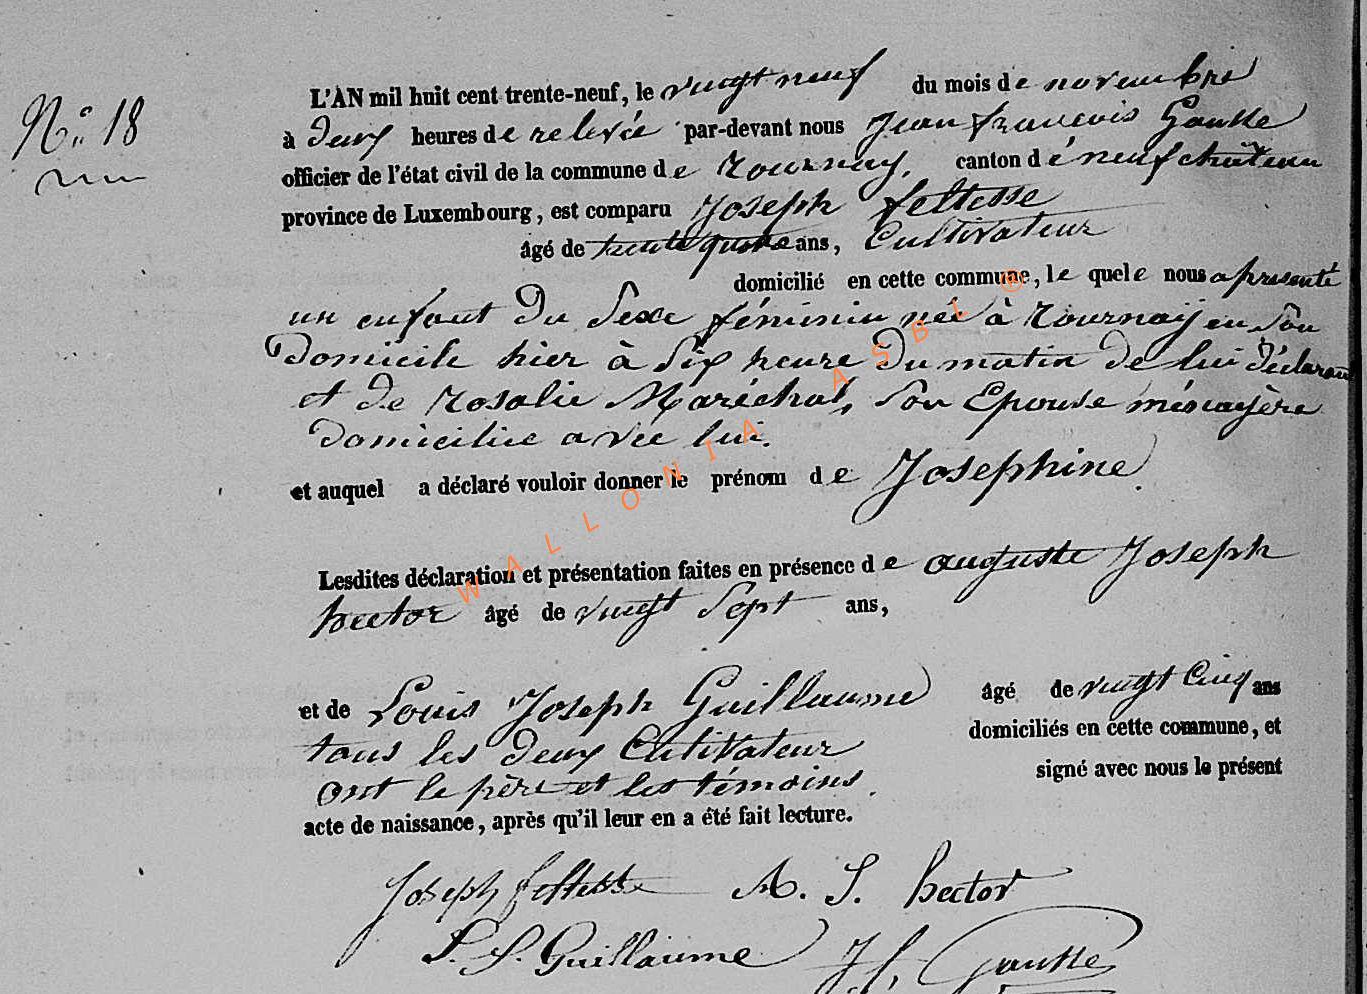 N.° 18
L'AN mil huit cent trente-neuf, le vingt neuf du mois de novembre
à deux heures de relevée par-devant nous Jean françois Gausse
officier de l'état civil de la commune de tournay, canton de neufchâteau
province de Luxembourg, est comparu Joseph feltesse
âgé de trente quatre ans, Cultivateur
domicilié en cette commune, le quele nous a présenté
un enfant du Sexe féminin née à tournay en Son
domicile hier à Six heure du matin de lui déclarant
et de rosalie Maréchal, Son Epouse ménagère
domiciliée avec lui.
et auquel a déclaré vouloir donner le prénom de Josephine.
Lesdites déclaration et présentation faites en présence de auguste Joseph
hector âgé de vingt Sept ans,
et de Louis Joseph Guillaume âgé de vingt Cinq ans
tous les deux Cultivateur domiciliés en cette commune, et
ont le père et les témoins signé avec nous le présent
acte de naissance, après qu'il leur en a été fait lecture.
Joseph feltesse A. J. hector
L. J. Guillaume J f. Gausse
WALLONIA ASBL ®